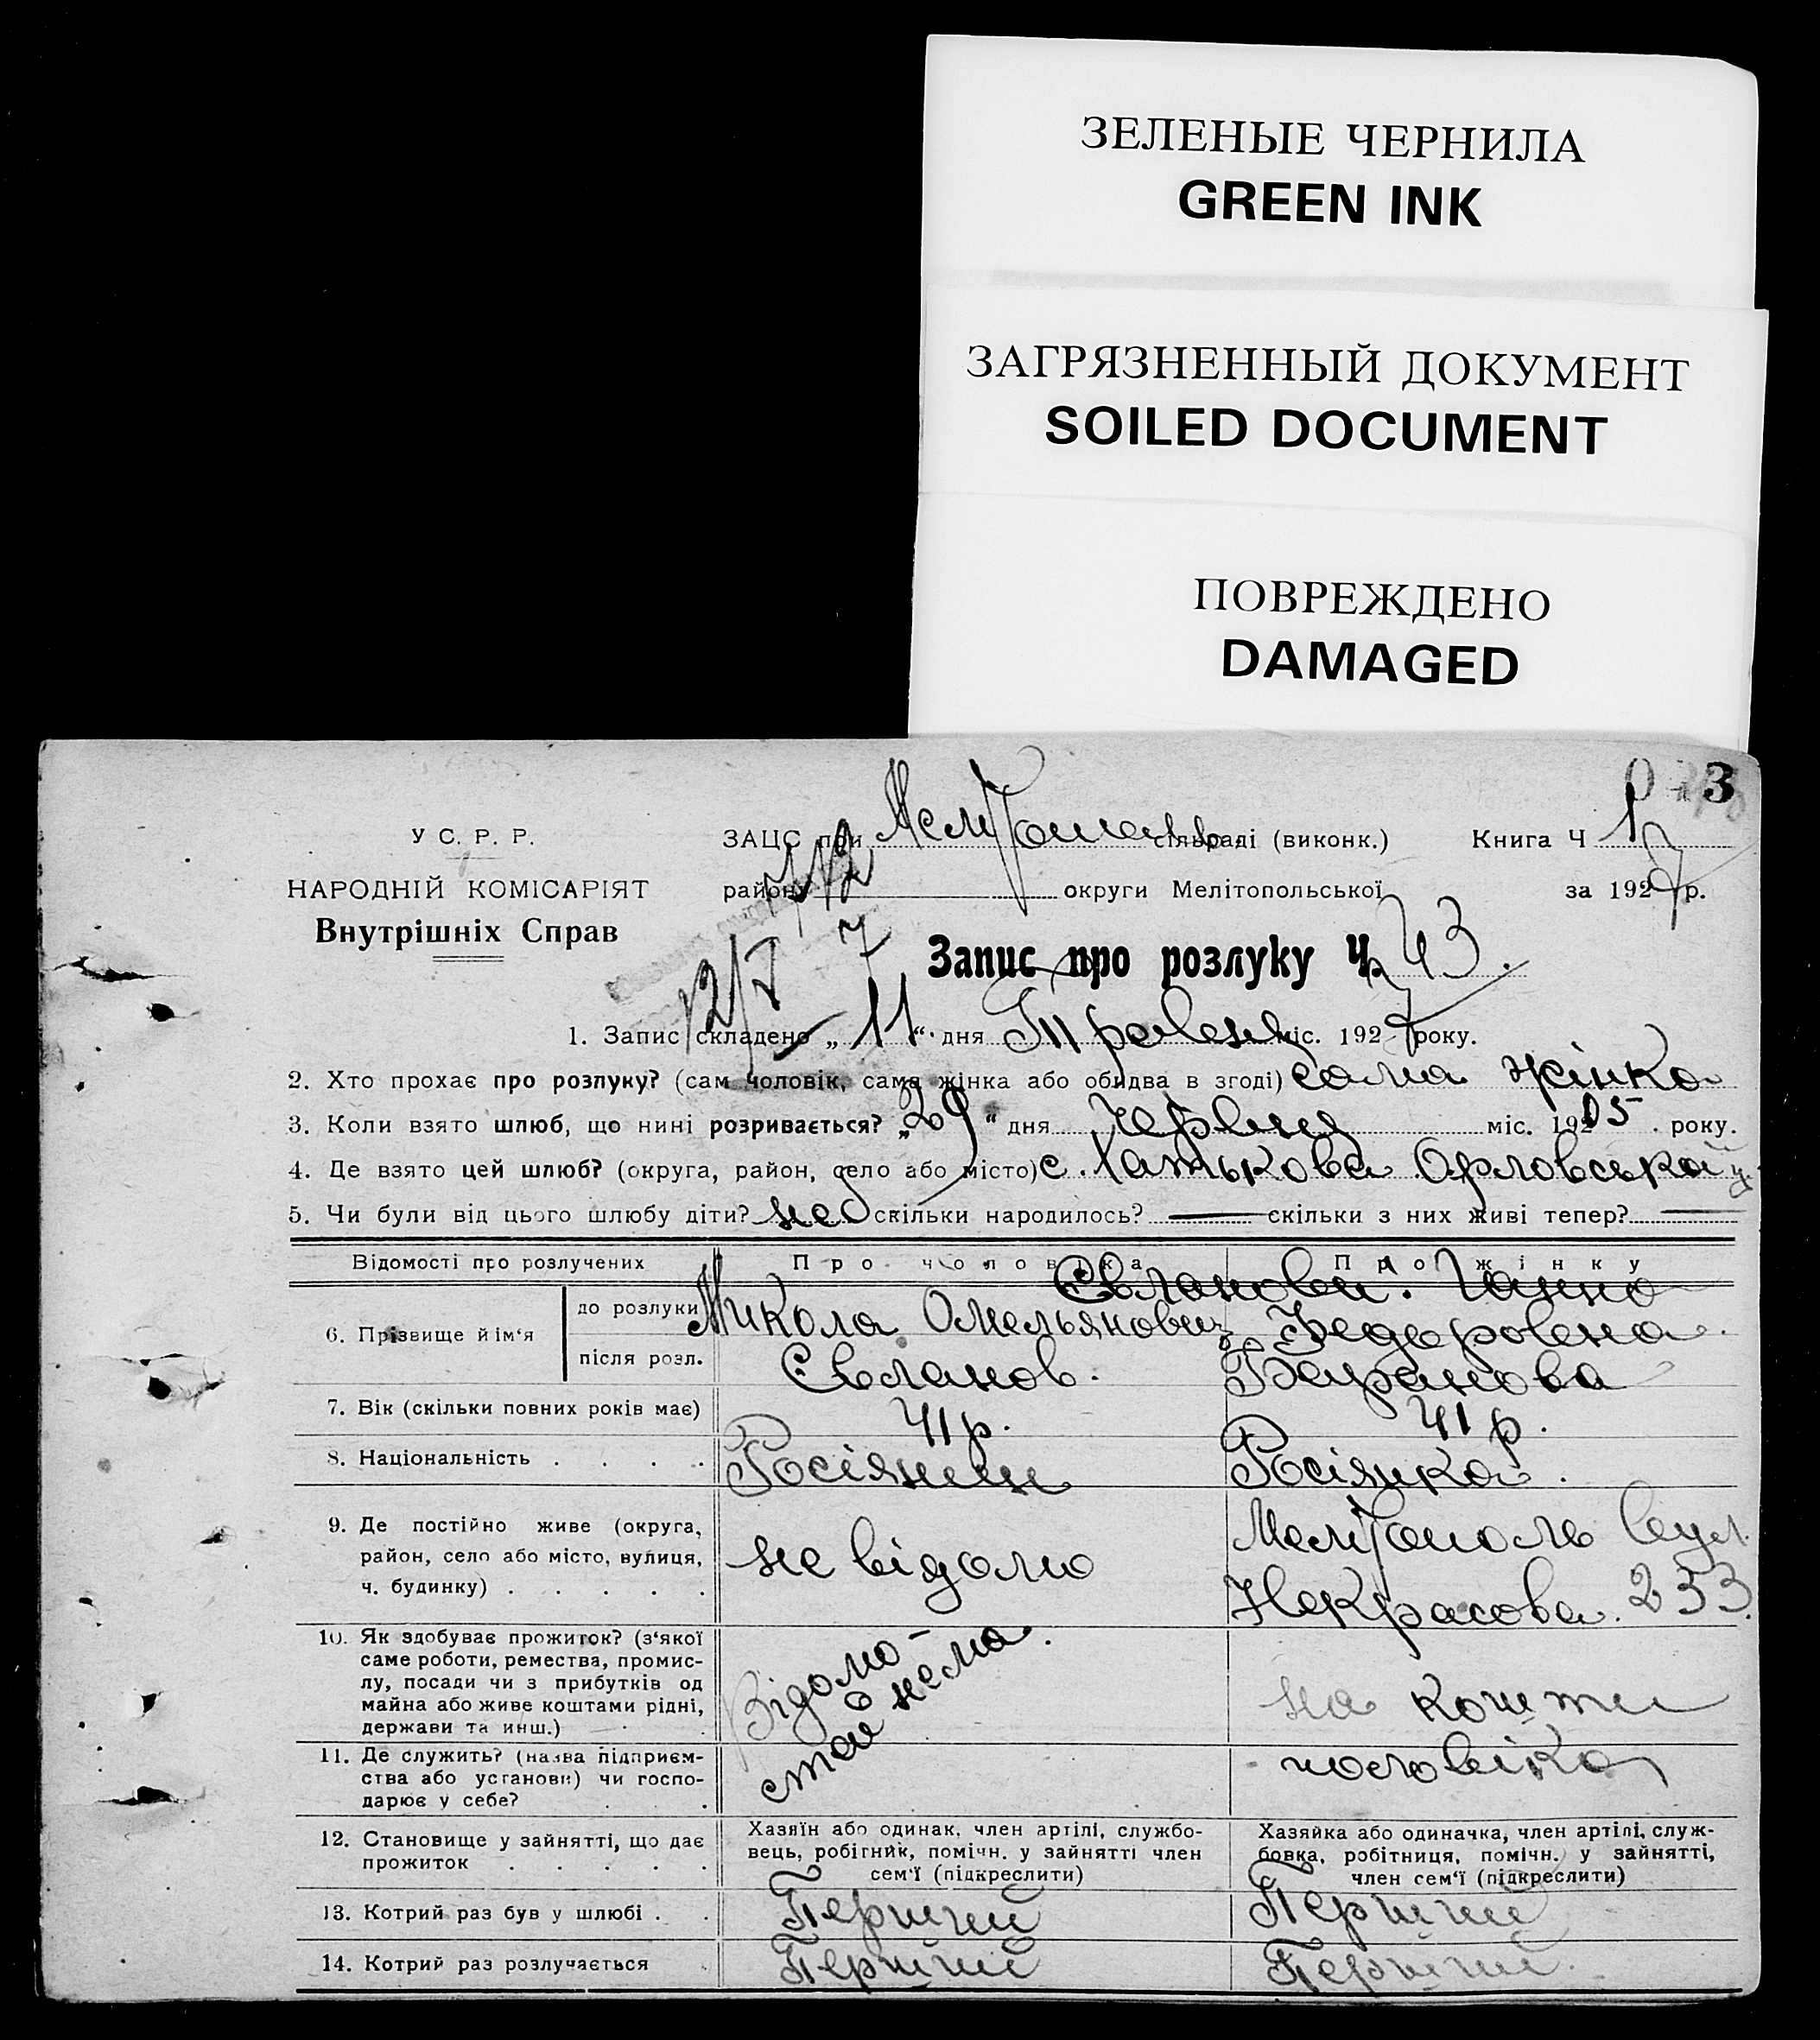 ЗЕЛЕНЫЕ ЧЕРНИЛА
GREEN INK
ЗАГРЯЗНЕННЫЙ ДОКУМЕНТ
SOILED DOCUMENT
ПОВРЕЖДЕНО
DAMAGED
3
У С. Р. Р.
НАРОДНІЙ КОМІСАРІЯТ
Внутрішніх Справ
ЗАЦС при сільраді (виконк.) Книга Ч 1
району округи Мелітопольської за 1927 р.
12/7
Запис про розлуку Ч. 43.
1. Запис складено „11“ дня Травеня міс. 1927 року.
2. Хто прохає про розлуку? (сам чоловік, сама жінка або обидва в згоді) сама жінка
3. Коли взято шлюб, що нині розривається? „29“ дня Червня міс. 1905. року.
4. Де взято цей шлюб? (округа, район, село або місто) с. Хатькова Орловської
5. Чи були від цього шлюбу діти? не скільки народилось? — скільки з них живі тепер? —
Відомості про розлучених
Про чоловіка
Про жінку
6. Прізвище й ім‘я
до розлуки
після розл.
Микола Омельянович
Євланов.
Євланова. Ганна
Федоровна.
Баранова
7. Вік (скільки повних років має) 41 р. 41 р.
8. Національність . . . . Росіянин Росіянка.
9. Де постійно живе (округа,
район, село або місто, вулиця,
ч. будинку) . . . . .
не відомо
Мелітополь вул.
Некрасова. 253.
10. Як здобуває прожиток? (з‘якої
саме роботи, ремества, промис-
лу, посади чи з прибутків од
майна або живе коштами рідні,
держави та инш.)
Відомо-
стей нема.
на кошти
чоловіка
11. Де служить? (назва підприєм-
ства або установи) чи госпо-
дарює у себе?
12. Становище у зайнятті, що дає
прожиток . . . . .
Хазяїн або одинак, член артілі, службо-
вець, робітник, помічн. у зайнятті член
сем‘ї (підкреслити)
Хазяйка або одиначка, член артілі, служ-
бовка, робітниця, помічн. у зайнятті,
член сем‘ї (підкреслити)
13. Котрий раз був у шлюбі . . Перший Перший
14. Котрий раз розлучається . Перший Перший.